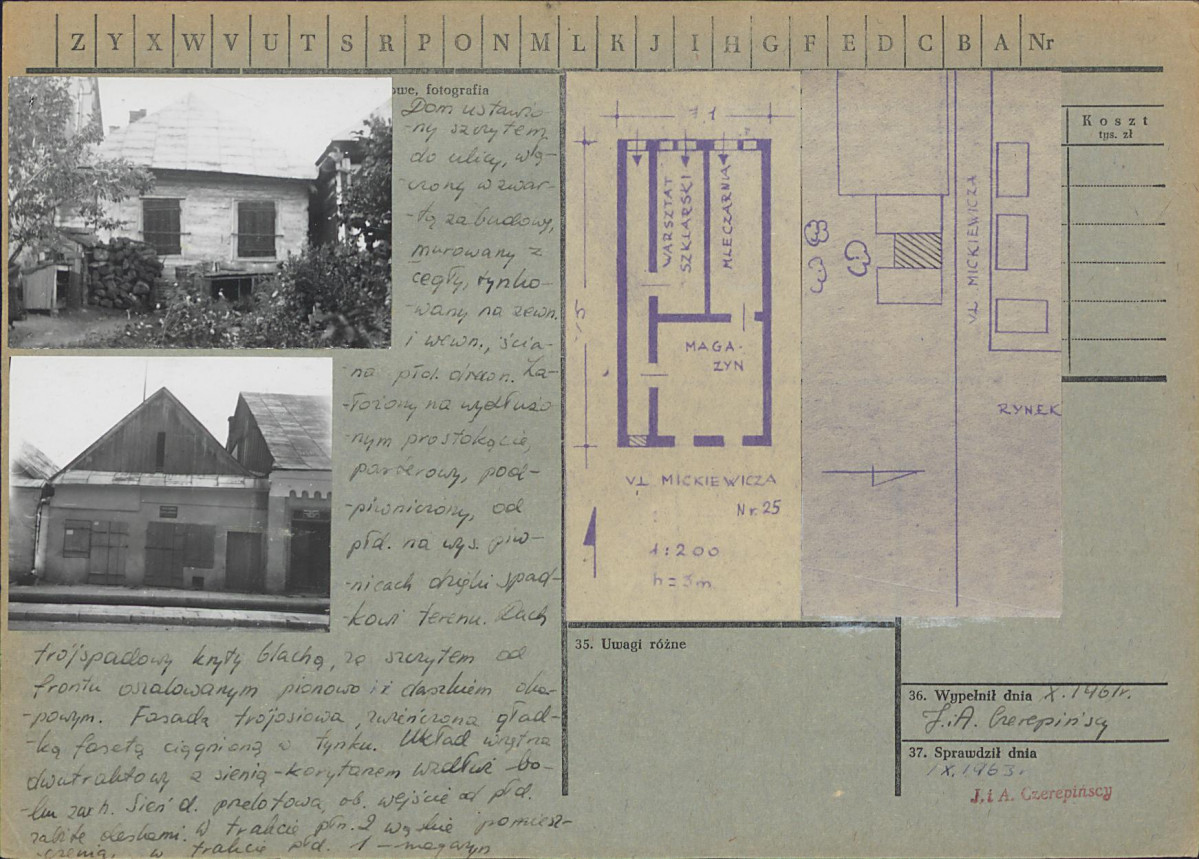 Z Y X W V U T S R P O N M L K J I H G F E D C B A Nr
owe, fotografia
Dom ustawio-
-ny szczytem
do ulicy, włą-
-czony w zwar-
-tą zabudowę,
murowany z
cegły, tynko-
-wany na zewn.
i wewn., ścia-
na płd. drewn. Za-
-łożony na wydłużo
-nym prostokącie,
parterowy, pod-
-piwniczony, od
płd. na wys. piw-
-nicach dzięki spad-
-kowi terenu. Dach
trójspadowy kryty blachą, ze szczytem od
frontu oszalowanym pionowo i z daszkiem oka-
-powym. Fasada trójosiowa, zwieńczona gład-
-ką fasetą ciągnioną w tynku. Układ wnętrza
dwutraktowy z sienią-korytarzem wzdłuż bo-
-ku zach. Sień d. przelotowa, ob. wejście od płd.
zabite deskami. W trakcie płn. 2 wąskie pomiesz-
-czenia, w trakcie płd. 1 - magazyn
11
WARSZTAT
SZKLARSKI
MLECZARNIA
15
MAGA-
ZYN
UL MICKIEWICZA
Nr. 25
1:200
h = 3m
UL. MICKIEWICZA
RYNEK
Koszt
tys. zł
35. Uwagi różne
36. Wypełnił dnia X. 1961r.
J. i A. Czerepińscy
37. Sprawdził dnia
IX. 1963.
J. i A. Czerepińscy